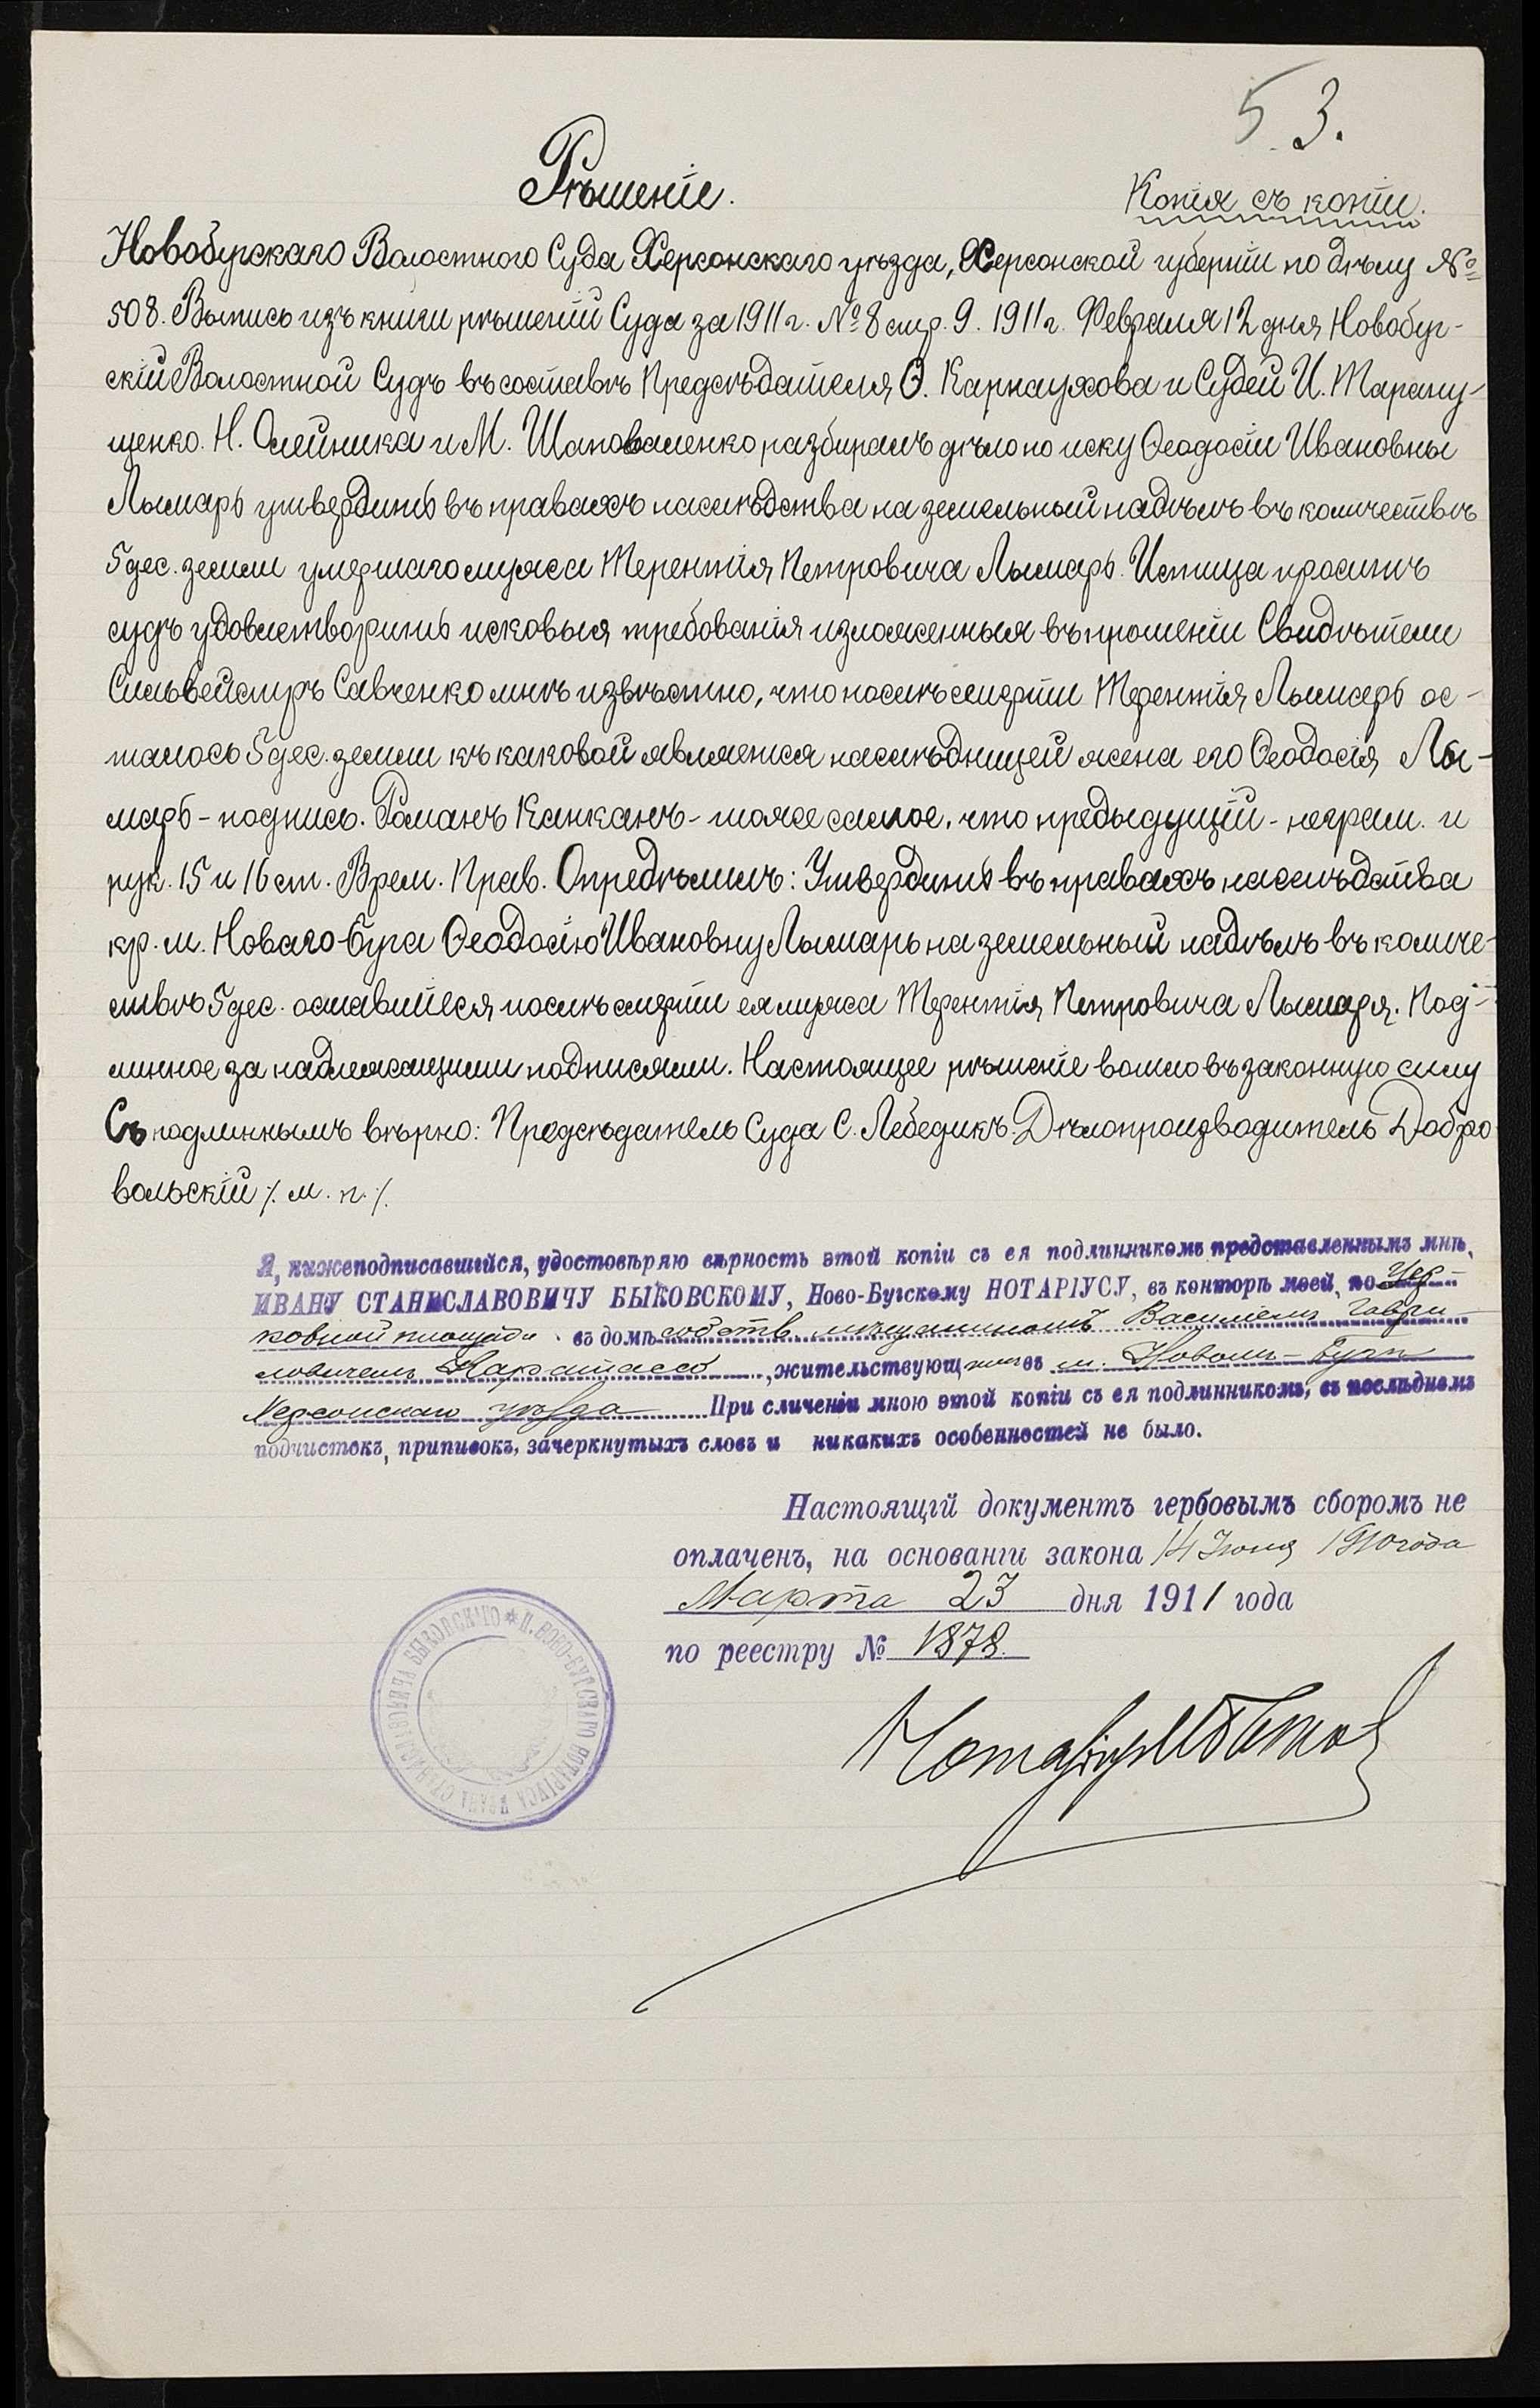 5 3.
Рѣшеніе.
Копія съ копіи.
Новобугскаго Волостного Суда Херсонскаго уѣзда, Херсонской губерніи по дѣлу №
508. Выпись изъ книги рѣшеній Суда за 1911 г. № 8 стр. 9. 1911 г. Февраля 12 дня Новобуг-
скій Волостной Судъ въ составѣ Предсѣдателя Ѳ. Карнаухова и Судей И. Тарану-
щенко. Н. Олейника и М. Шаповаленко разбиралъ дѣло по иску Ѳеодосіи Ивановны
Лымарь утвердить въ правахъ наслѣдства на земельный надѣлъ въ количествѣ
5 дес. земли умершаго мужа Терентія Петровича Лымарь. Истица проситъ
судъ удовлетворить исковыя требованія изложенныя въ прошеніи Свидѣтели
Сильвейстръ Савченко мнѣ извѣстно, что послѣ смерти Терентія Лымарь ос-
талось 5 дес. земли къ каковой является наслѣдницей жена его Ѳеодосія Лы-
марь - подпись. Романъ Канканъ - тоже самое, что предыдущій - неграм. и
рук. 15 и 16 ст. Врем. Прав. Опредѣлилъ: Утвердить въ правахъ наслѣдства
кр. м. Новаго-Буга Ѳеодосію Ивановну Лымарь на земельный надѣлъ въ количе-
ствѣ 5 дес. оставшійся послѣ смерти ея мужа Терентія Петровича Лымаря. Под-
линное за надлежащими подписями. Настоящее рѣшеніе вошло въ законную силу
Съ подлиннымъ вѣрно: Предсѣдатель Суда С. Лебедикъ. Дѣлопроизводитель Добро
вольскій /. м. п. /.
Я, нижеподписавшійся, удостовѣряю вѣрность этой копіи съ ея подлинникомъ представленнымъ мнѣ,
ИВАНУ СТАНИСЛАВОВИЧУ БЫКОВСКОМУ, Ново-Бугскому НОТАРІУСУ, въ конторѣ моей, по Цер-
ковной площади въ домѣ собств. мѣщаниномъ Василіемъ Гаври-
ловичемъ , жительствующимъ въ м. Новомъ-Бугѣ
Херсонскаго уѣзда При сличеніи мною этой копіи съ ея подлинникомъ, въ послѣднемъ
подчистокъ, приписокъ, зачеркнутыхъ словъ и никакихъ особенностей не было.
Настоящій документъ гербовымъ сборомъ не
оплаченъ, на основаніи закона 14 Іюня 1910 года
Марта 23 дня 1911 года
по реестру № 1878.
Нотаріусъ
И. НОВО-БУГСКАГО НОТАРІУСА ИВАНА СТАНИСЛАВОВИЧА БЫКОВСКАГО